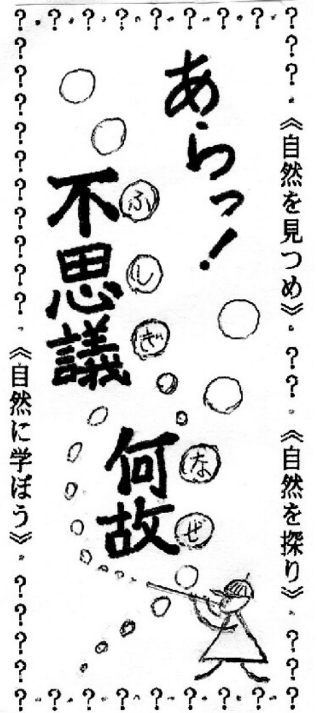 ? ? ? ? ? ? ? ? ?
? ? 。《自然を見つめ》。? ? 。《自然を探り》。? ? ?
あらっ!
不思議
ふしぎ
何故
なぜ
? ? ? ? ? ? ? ? ? ? 。《自然に学ぼう》。? ? ? ? ?
? ? ? ? ? ? ? ? ?